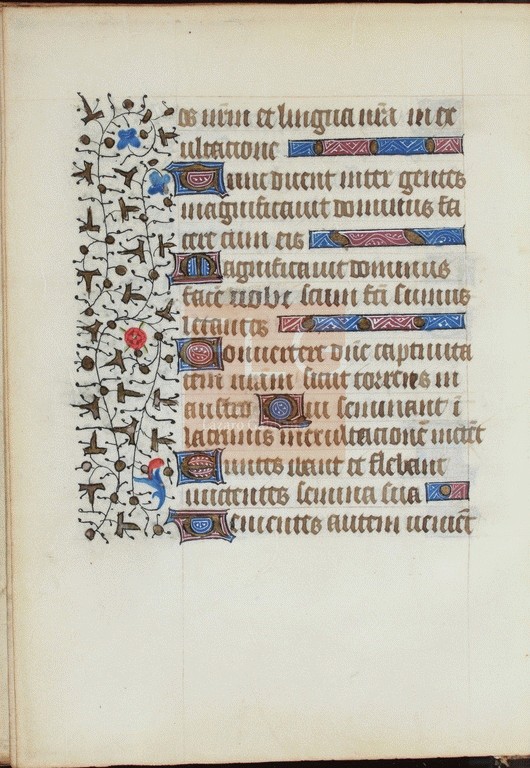 os nr̄m et lingua nr̄a in ex
ultatione
Tunc dicent inter gentes
magnificavit dominus fa
cere cum eis
Magnificavit dominus
facere nobiscum fcī sumus
letantes
Convertere dn̄e captivita
tem nr̄am sicut torrens in
austro Qui seminant ī
lacrimis in exultatione metēt
Euntes ibant et flebant
mittentes semina sua
Venientes autem veniēt
Lázaro